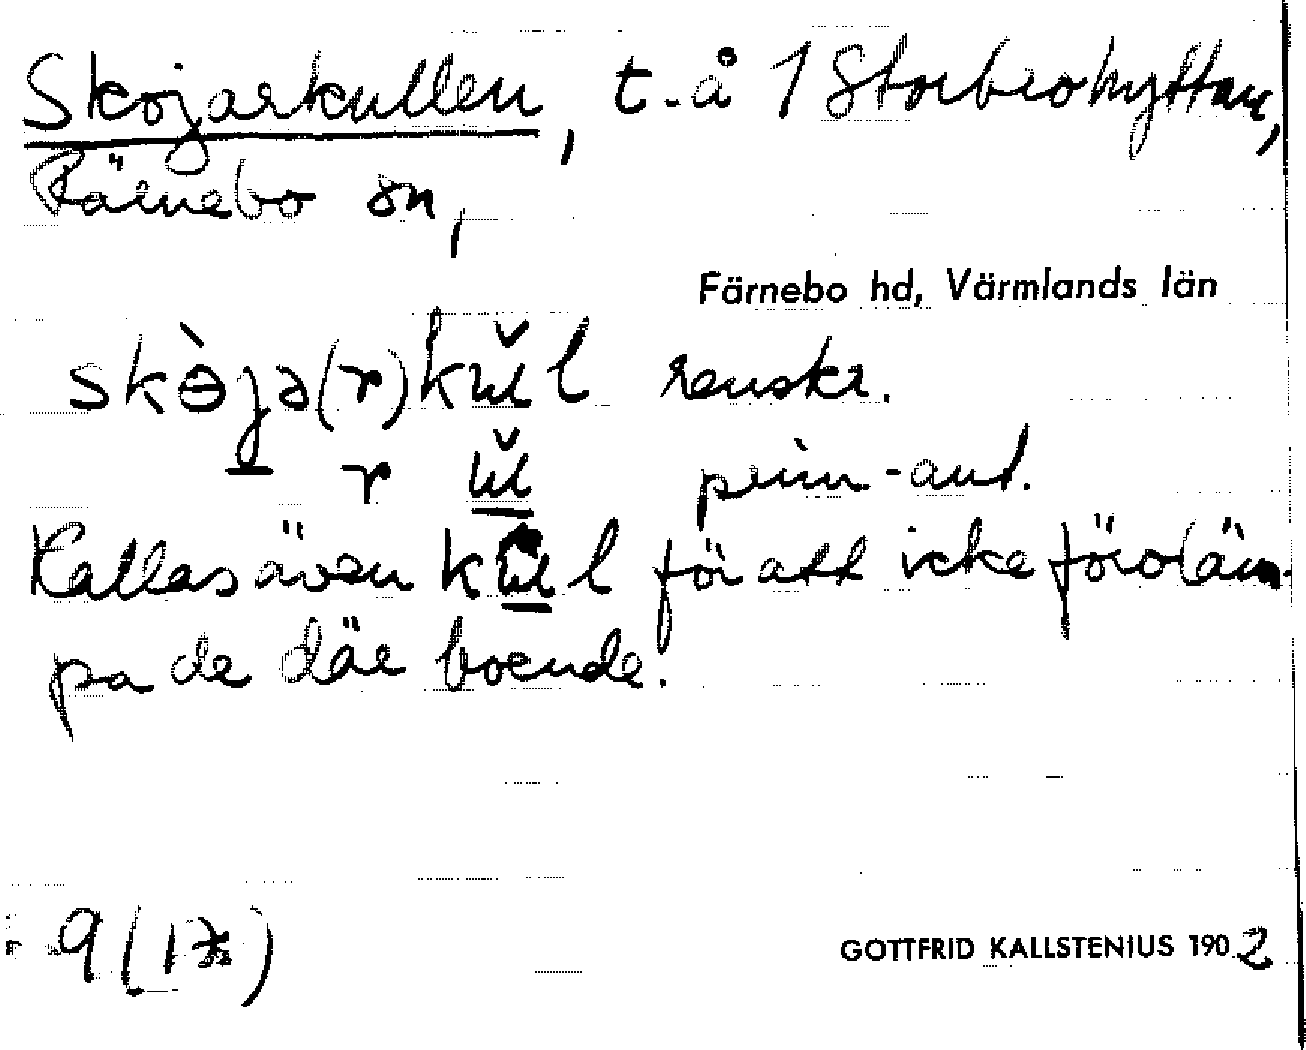 Skojarkullen, t. å 1 Storbrohyttan,
Färnebo sn,
Färnebo hd, Värmlands län
skɵ̀jə(r)kŭl l renskr.
r ŭ prim.-ant.
Kallas även kul l för att icke föroläm-
pa de där boende.
9 (1
GOTTFRID KALLSTENIUS 1902